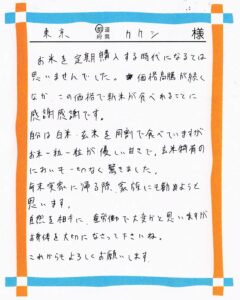 東京 都道府県 カケン 様
お米を定期購入する時代になるとは
思いませんでした。価格高騰が続く
なか この価格で新米が食べれることに
感謝感謝です。
私は白米・玄米を同割で食べていますが
お米一粒一粒が優しい甘さで、玄米特有の
においも一切なく驚きました。
毎年実家に帰る際、家族にも勧めようと
思います。
自然を相手に、重労働で大変かと思いますが
お身体を大切になさって下さいね。
これからもよろしくお願いします